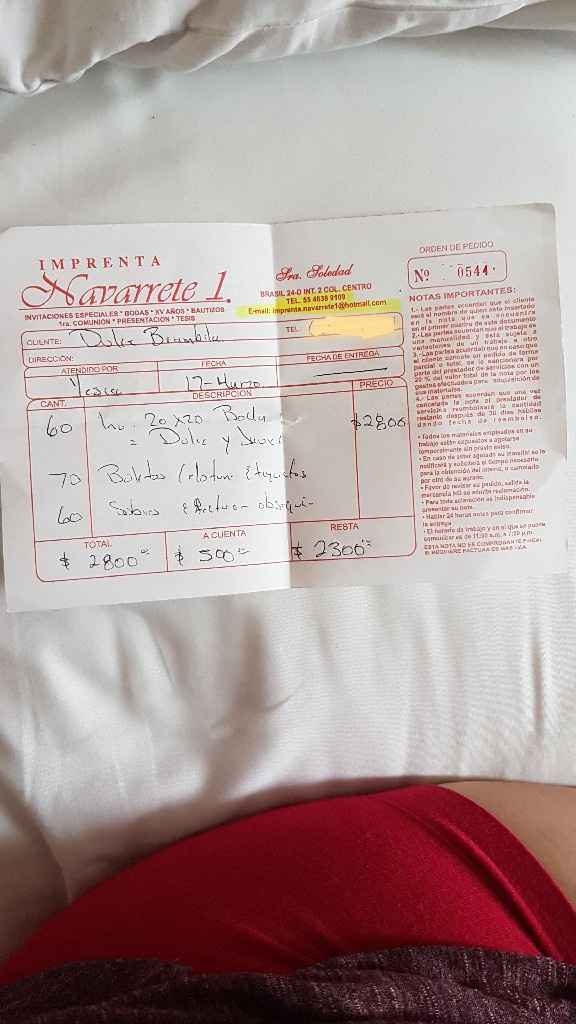 IMPRENTA
Navarrete 1.
INVITACIONES ESPECIALES * BODAS * XV AÑOS * BAUTIZOS
1ra. COMUNION * PRESENTACION * TESIS
Sra. Soledad
BRASIL 24-D INT. 2 COL. CENTRO
TEL. 55 4638 9109
E-mail: imprenta.navarrete1@hotmail.com
ORDEN DE PEDIDO
Nº 0544
CLIENTE: Dulce
TEL.
DIRECCIÓN:
ATENDIDO POR
FECHA
FECHA DE ENTREGA
17-Marzo
CANT.
DESCRIPCIÓN
PRECIO
60 Inv. 20x20 Boda $2800
= Dulce y
70 Boletos Etiquetas
60 Sobres Efectivo - obsequi-
TOTAL
A CUENTA
RESTA
$ 2800
$ 500
$ 2300
NOTAS IMPORTANTES:
1.- Las partes acuerdan que el cliente
será el nombre de quien esta insertado
en la nota que se encuentra
en el primer cuadro de este documento
2.- Las partes acuerdan que el trabajo es
una manualidad y esta sujeta a
variaciones de un trabajo a otro
3.- Las partes acuerdan que en caso que
el cliente cancele un pedido de forma
parcial o total, se le sancionara por
parte del prestador de servicios con un
20 % del valor total de la nota por los
gastos efectuados para adquisición de
sus materiales.
4.- Las partes acuerdan que una vez
cancelada la nota el prestador de
servicios reembolsará la cantidad
restante después de 30 días hábiles
dando fecha de reembolso.
• Todos los materiales empleados en su
trabajo están expuestos a agotarse
temporalmente sin previo aviso.
• En caso de estar agotado su material se le
notificará y solicitará el tiempo necesario
para la obtención del mismo, o cambiarlo
por otro de su agrado.
• Favor de revisar su pedido, salida la
mercancía NO se admite reclamación.
• Para toda aclaración es indispensable
presentar su nota.
• Hablar 24 horas antes para confirmar
la entrega
• El horario de trabajo y en el que se puede
comunicar es de 11:00 a.m. a 7:00 p.m.
ESTA NOTA NO ES COMPROBANTE FISCAL
SI REQUIERE FACTURA ES MAS I.V.A